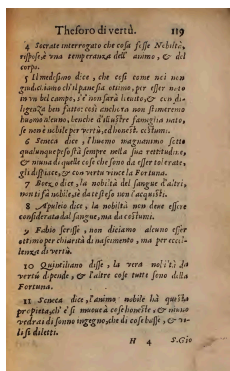 Thesoro di vertù. 119
4 Socrate interrogato che cosa fusse Nobiltà,
rispose, è vna temperanza dell' animo, & del
corpo.
5 Il medesimo dice, che si come noi non
giudichiamo ch'il pane sia ottimo, per esser nato
in vn bel campo, s'e' non sarà lieuito, & con di-
ligenza ben fatto: così anchora non stimaremo
huomo alcuno, benche d'illustre fameglia nato,
se non è nobile per vertù, ed honest. costumi.
6 Seneca dice, l'huomo magnanimo sotto
qualunque peso sta sempre nella sua rettitudine,
& niuna di quelle cose che sono da esser tolerate,
gli dispiace, & con vertù vince la Fortuna.
7 Boezo dice, la nobiltà del sangue d'altri,
non ti fa nobile, se da te stesso non l'acquisti.
8 Apuleio dice, la nobiltà non deue essere
considerata dal sangue, ma da costumi.
9 Fabio scrisse, non diciamo alcuno esser
ottimo per chiarità di nascimento, ma per eccel-
lenza di vertù.
10 Quintiliano disse, la vera nobiltà da
vertù dipende, & l'altre cose tutte sono della
Fortuna.
11 Seneca dice, l'animo nobile hà questa
propietà, ch' e' si muoue à cose honeste, & niuno
vedrai di sonno ingegno, che di cose basse, & vi-
li si diletti.
H 4 S.Gio